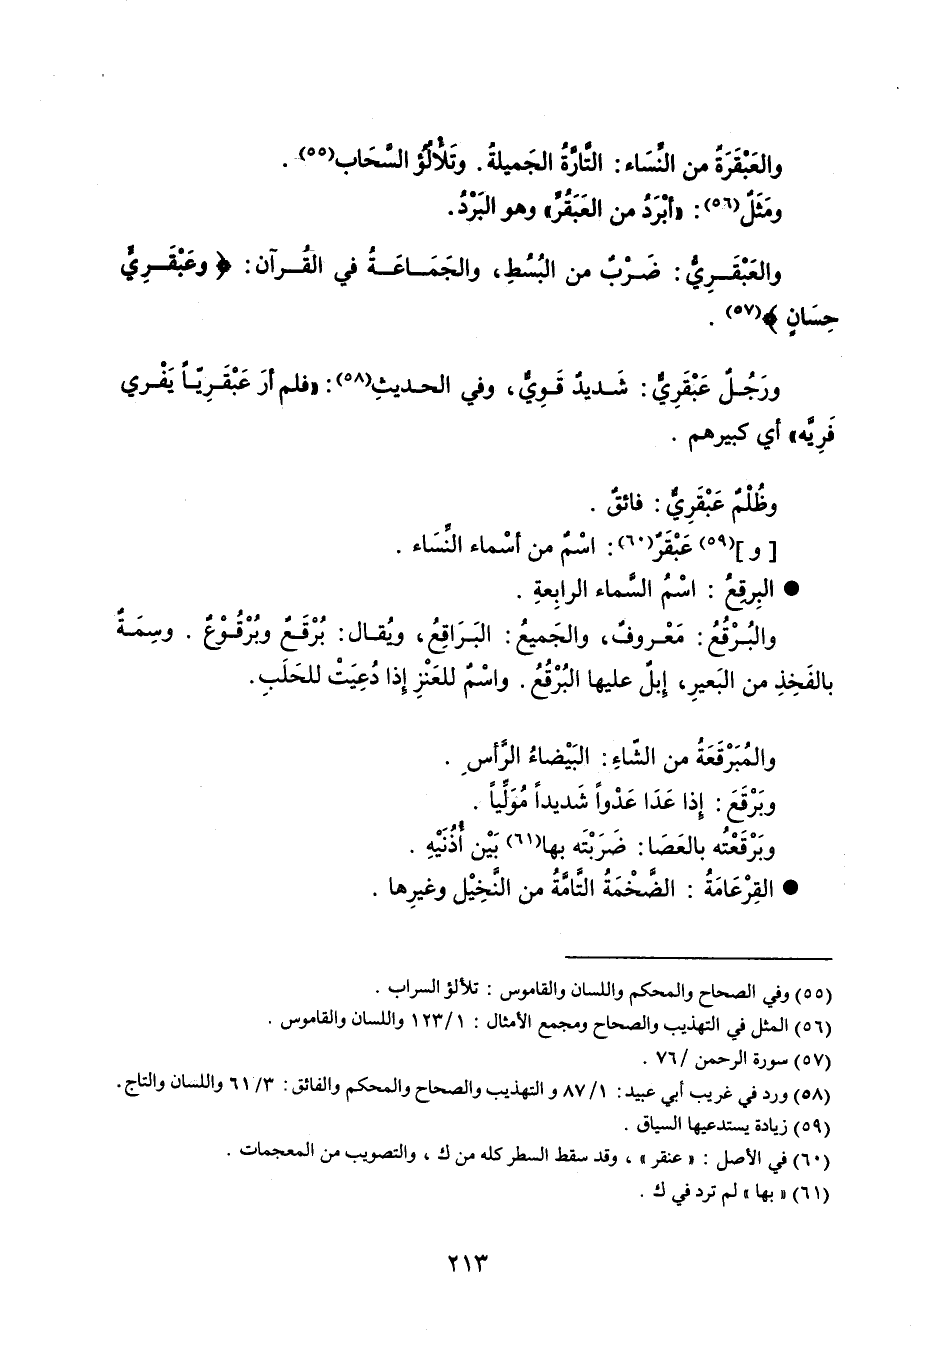 والعَبْقَرَةُ من النِّسَاء: التَّارَّةُ الجَميلةُ. وتَلأْلُؤُ السَّحَاب(٥٥) .
ومَثَلٌ(٥٦): «أبْرَدُ من العَبَقُرِّ» وهو البَرْدُ.
والعَبْقَـرِيُّ: ضَرْبٌ من البُسُطِ، والجَمَـاعَـةُ في القُـرآن: ﴿ وعَبْقَـرِيٍّ
حِسَانٍ ﴾(٥٧) .
ورَجُـلٌ عَبْقَرِيٌّ: شَـديدٌ قَـوِيٌّ، وفي الحـديثِ(٥٨): «فلم أرَ عَبْقَـرِيّـاً يَفْـري
فَرِيَّه» أي كبيرهم .
وظُلْمٌ عَبْقَرِيٌّ: فائقٌ .
[ و ](٥٩) عَبْقَرٌ(٦٠): اسْمٌ من أسْماء النِّسَاء .
● البِرقِعُ : اسْمُ السَّماء الرابِعةِ .
والبُـرْقُعُ: مَعْـروفٌ، والجَميعُ: البَـرَاقِعُ، ويُقـال: بُرْقَـعٌ وبُرْقُـوْعٌ . وسِمَـةٌ
بالفَخِذِ من البَعيرِ، إبلٌ عليها البُرْقُعُ. واسْمٌ للعَنْزِ إذا دُعِيَتْ للحَلَبِ.
والمُبَرْقَعَةُ من الشَّاءِ: البَيْضاءُ الرَّأسِ .
وبَرْقَعَ: إذا عَدَا عَدْواً شَديداً مُوَلِّياً .
وبَرْقَعْتُه بالعَصَا: ضَرَبْتَه بها(٦١) بَيْن أُذُنَيْهِ .
● القِرْعَامَةُ : الضَّخْمَةُ التَّامَّةُ من النَّخِيْل وغيرِها .
(٥٥) وفي الصحاح والمحكم واللسان والقاموس : تلألؤ السراب .
(٥٦) المثل في التهذيب والصحاح ومجمع الأمثال : ١/ ١٢٣ واللسان والقاموس .
(٥٧) سورة الرحمن / ٧٦ .
(٥٨) ورد في غريب أبي عبيد: ١/ ٨٧ و التهذيب والصحاح والمحكم والفائق: ٣/ ٦١ واللسان والتاج.
(٥٩) زيادة يستدعيها السياق .
(٦٠) في الأصل : « عنقر » ، وقد سقط السطر كله من ك ، والتصويب من المعجمات .
(٦١) « بها » لم ترد في ك .
٢١٣